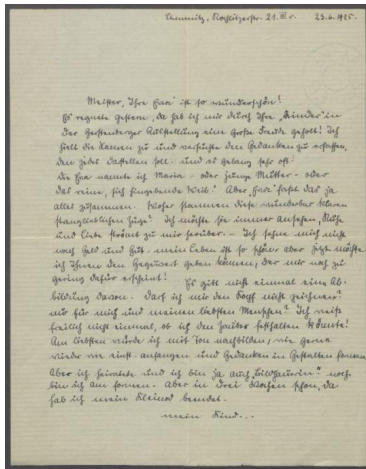 Chemnitz, Rochlitzerstr. 21 III r. 23.6.1925.
Meister, Ihre "Eva" ist so wunderschön!
Es regnete gestern, da hab ich mir durch Ihre "Kinder" in
der Gerstenberger Ausstellung eine große Freude geholt! Ich
hielt die Namen zu und versuchte den Gedanken zu erfassen,
den jedes darstellen soll - und es gelang sehr oft.
Die Eva nannte ich Maria - oder junge Mutter - oder
das reine, sich hingebende Weib! Aber "Eva" faßt das ja
alles zusammen. Woher stammen diese wunderbar klaren
Züge? Ich möchte sie immer ansehen, Ruhe
und Liebe strömt zu mir herüber. - Ich sehne mich nicht
nach Geld und Gut - mein Leben ist so schön, aber jetzt möchte
ich Ihnen den Gegenwert geben können, der mir noch zu
gering dafür erscheint! Es gibt nicht einmal eine Ab-
bildung davon. Darf ich mir den Kopf nicht zeichnen?
nur für mich und meinen liebsten Menschen? Ich weiß
freilich nicht einmal, ob ich den Zauber festhalten könnte!
Am liebsten würde ich mit Ton nachbilden, wie gerne
würde wie einst anfangen und Gedanken in Gestalten formen
Aber ich heiratete und ich bin ja auch "Bildhauerin" noch
bin ich am formen - aber in drei Wochen schon, da
hab ich mein Kleinod beendet -
mein Kind...